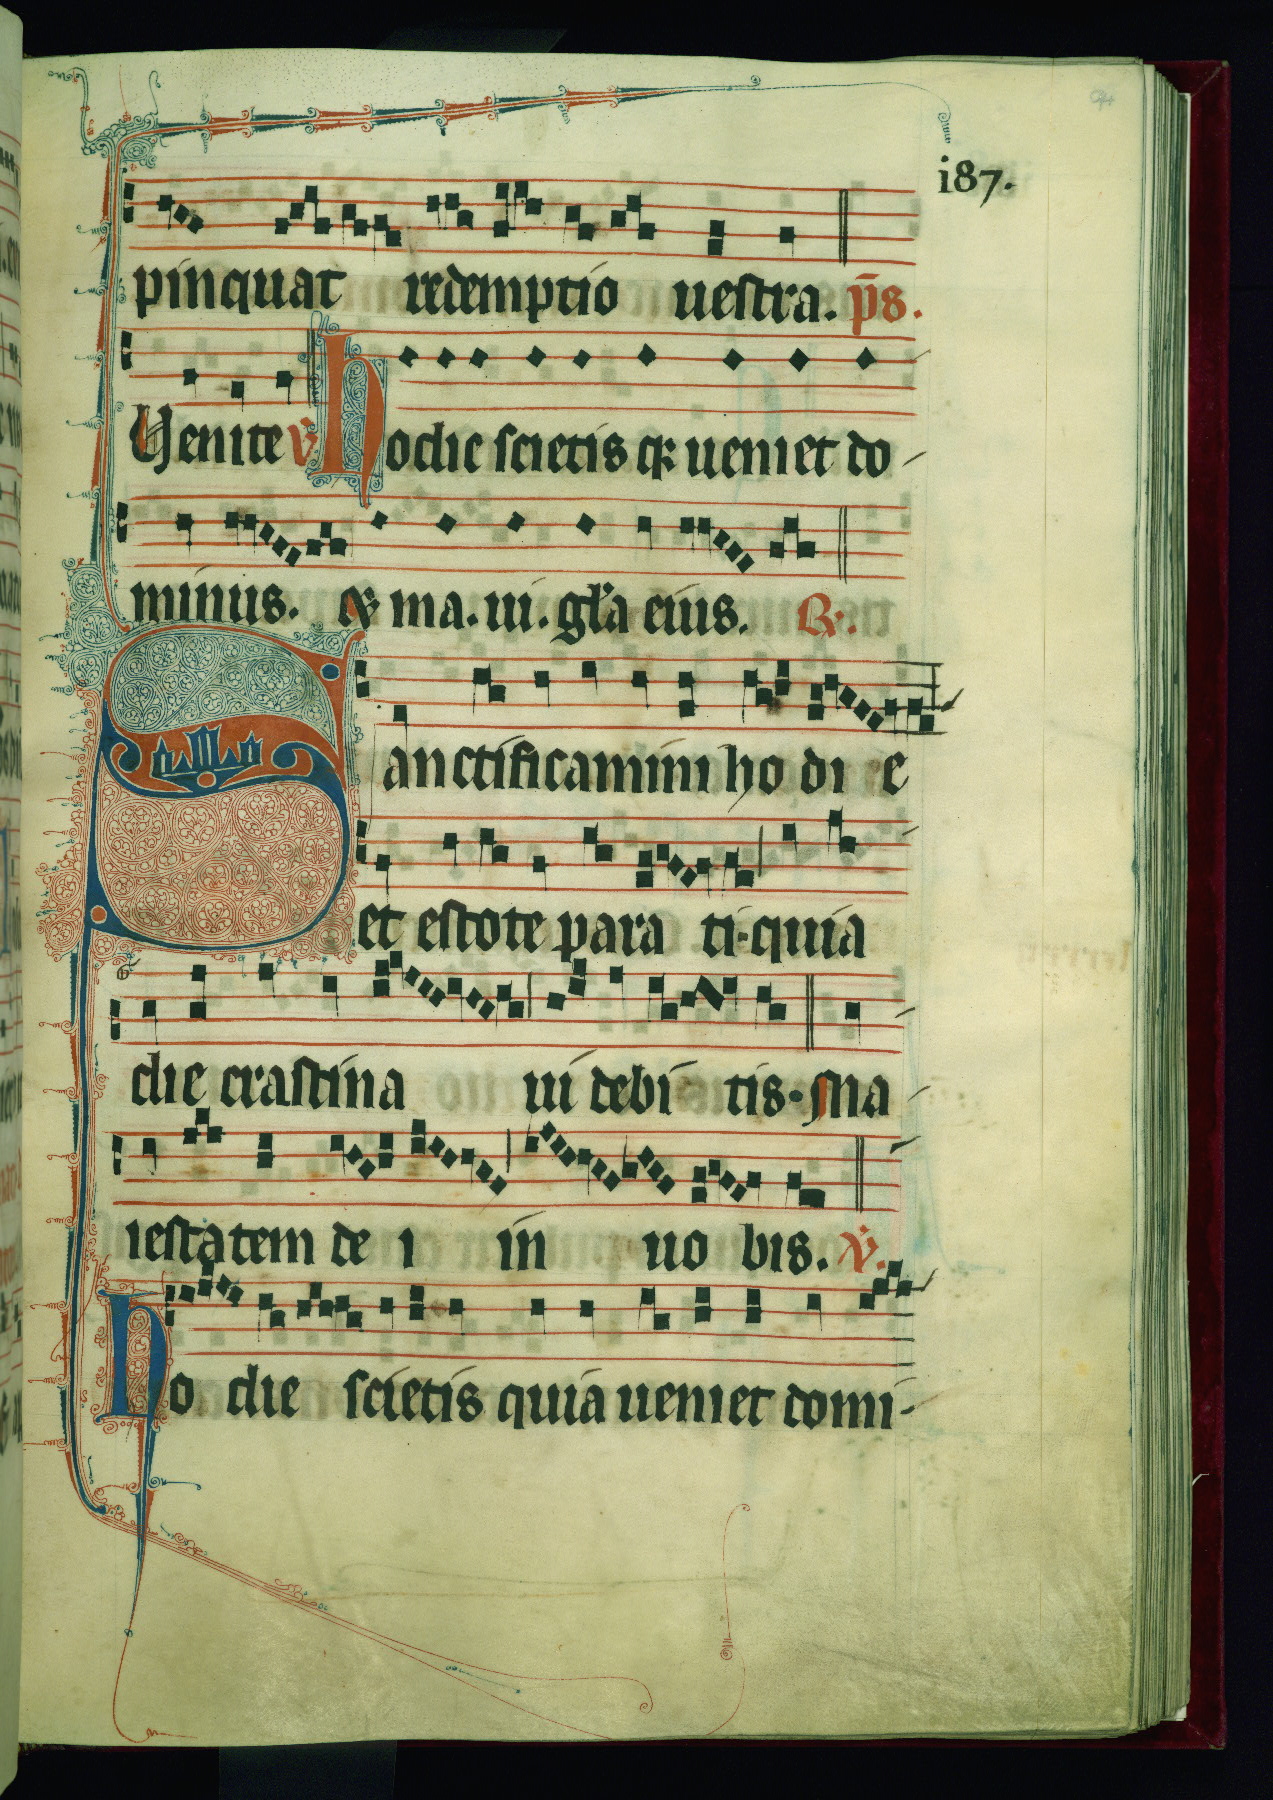 i87.
pinquat redemptio uestra. p̄s.
Uenite v̇. hodie scietis qꝛ ueniet do
minus. Ꝟ ma. ui. gl'a eius. ℟.
Sanctificamini ho di e
et estote para ti·quia
die crastina ui debi tis·sna
iestatem de i in uo bis. v̇.
ho die scietis quia ueniet domi-